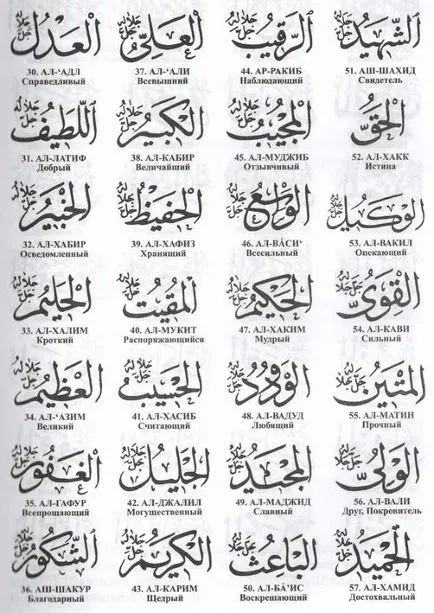 العدل جل جلاله
30. АЛ-‘АДЛ
Справедливый
اللطيف جل جلاله
31. АЛ-ЛАТИФ
Добрый
الخبير جل جلاله
32. АЛ-ХАБИР
Осведомленный
الحليم جل جلاله
33. АЛ-ХАЛИМ
Кроткий
العظيم جل جلاله
34. АЛ-‘АЗИМ
Великий
الغفور جل جلاله
35. АЛ-ГАФУР
Всепрощающий
الشكور جل جلاله
36. АШ-ШАКУР
Благодарный
العلي جل جلاله
37. АЛ-‘АЛИ
Всевышний
الكبير جل جلاله
38. АЛ-КАБИР
Величайший
الحفيظ جل جلاله
39. АЛ-ХАФИЗ
Хранящий
المقيت جل جلاله
40. АЛ-МУКИТ
Распоряжающийся
الحسيب جل جلاله
41. АЛ-ХАСИБ
Считающий
الجليل جل جلاله
42. АЛ-ДЖАЛИЛ
Могущественный
الكريم جل جلاله
43. АЛ-КАРИМ
Щедрый
الرقيب جل جلاله
44. АР-РАКИБ
Наблюдающий
المجيب جل جلاله
45. АЛ-МУДЖИБ
Отзывчивый
الواسع جل جلاله
46. АЛ-ВÁСИ‘
Всесильный
الحكيم جل جلاله
47. АЛ-ХАКИМ
Мудрый
الودود جل جلاله
48. АЛ-ВАДУД
Любящий
المجيد جل جلاله
49. АЛ-МАДЖИД
Славный
الباعث جل جلاله
50. АЛ-БÁ’ИС
Воскрешающий
الشهيد جل جلاله
51. АШ-ШАХИД
Свидетель
الحق جل جلاله
52. АЛ-ХАКК
Истина
الوكيل جل جلاله
53. АЛ-ВАКИЛ
Опекающий
القوي جل جلاله
54. АЛ-КАВИ
Сильный
المتين جل جلاله
55. АЛ-МАТИН
Прочный
الولي جل جلاله
56. АЛ-ВАЛИ
Друг, Покровитель
الحميد جل جلاله
57. АЛ-ХАМИД
Достохвальный